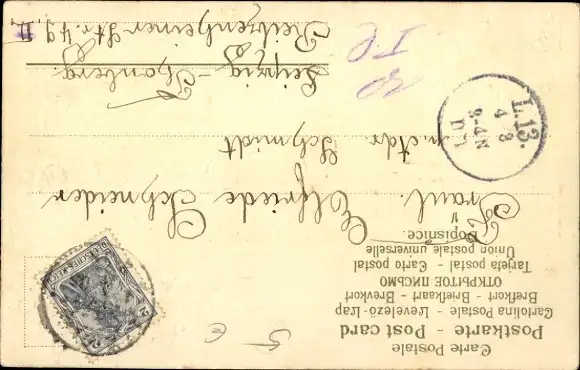 Carte Postale
Postkarte - Post card
Cartolina Postale - Levelező-Lap
Brefkort - Briefkaart - Brevkort
ОТКРЫТОЕ ПИСЬМО
Tarjeta postal - Carto postal
Union postale universelle
Dopisnice.
Fraul. Elfriede Schneider
p. Adr. Schmidt
Leipzig - Thonberg
Reitzenhainer Str. 49 II
L. 13.
4 8
8-9N
DEUTSCHES REICH
2
2
5 €